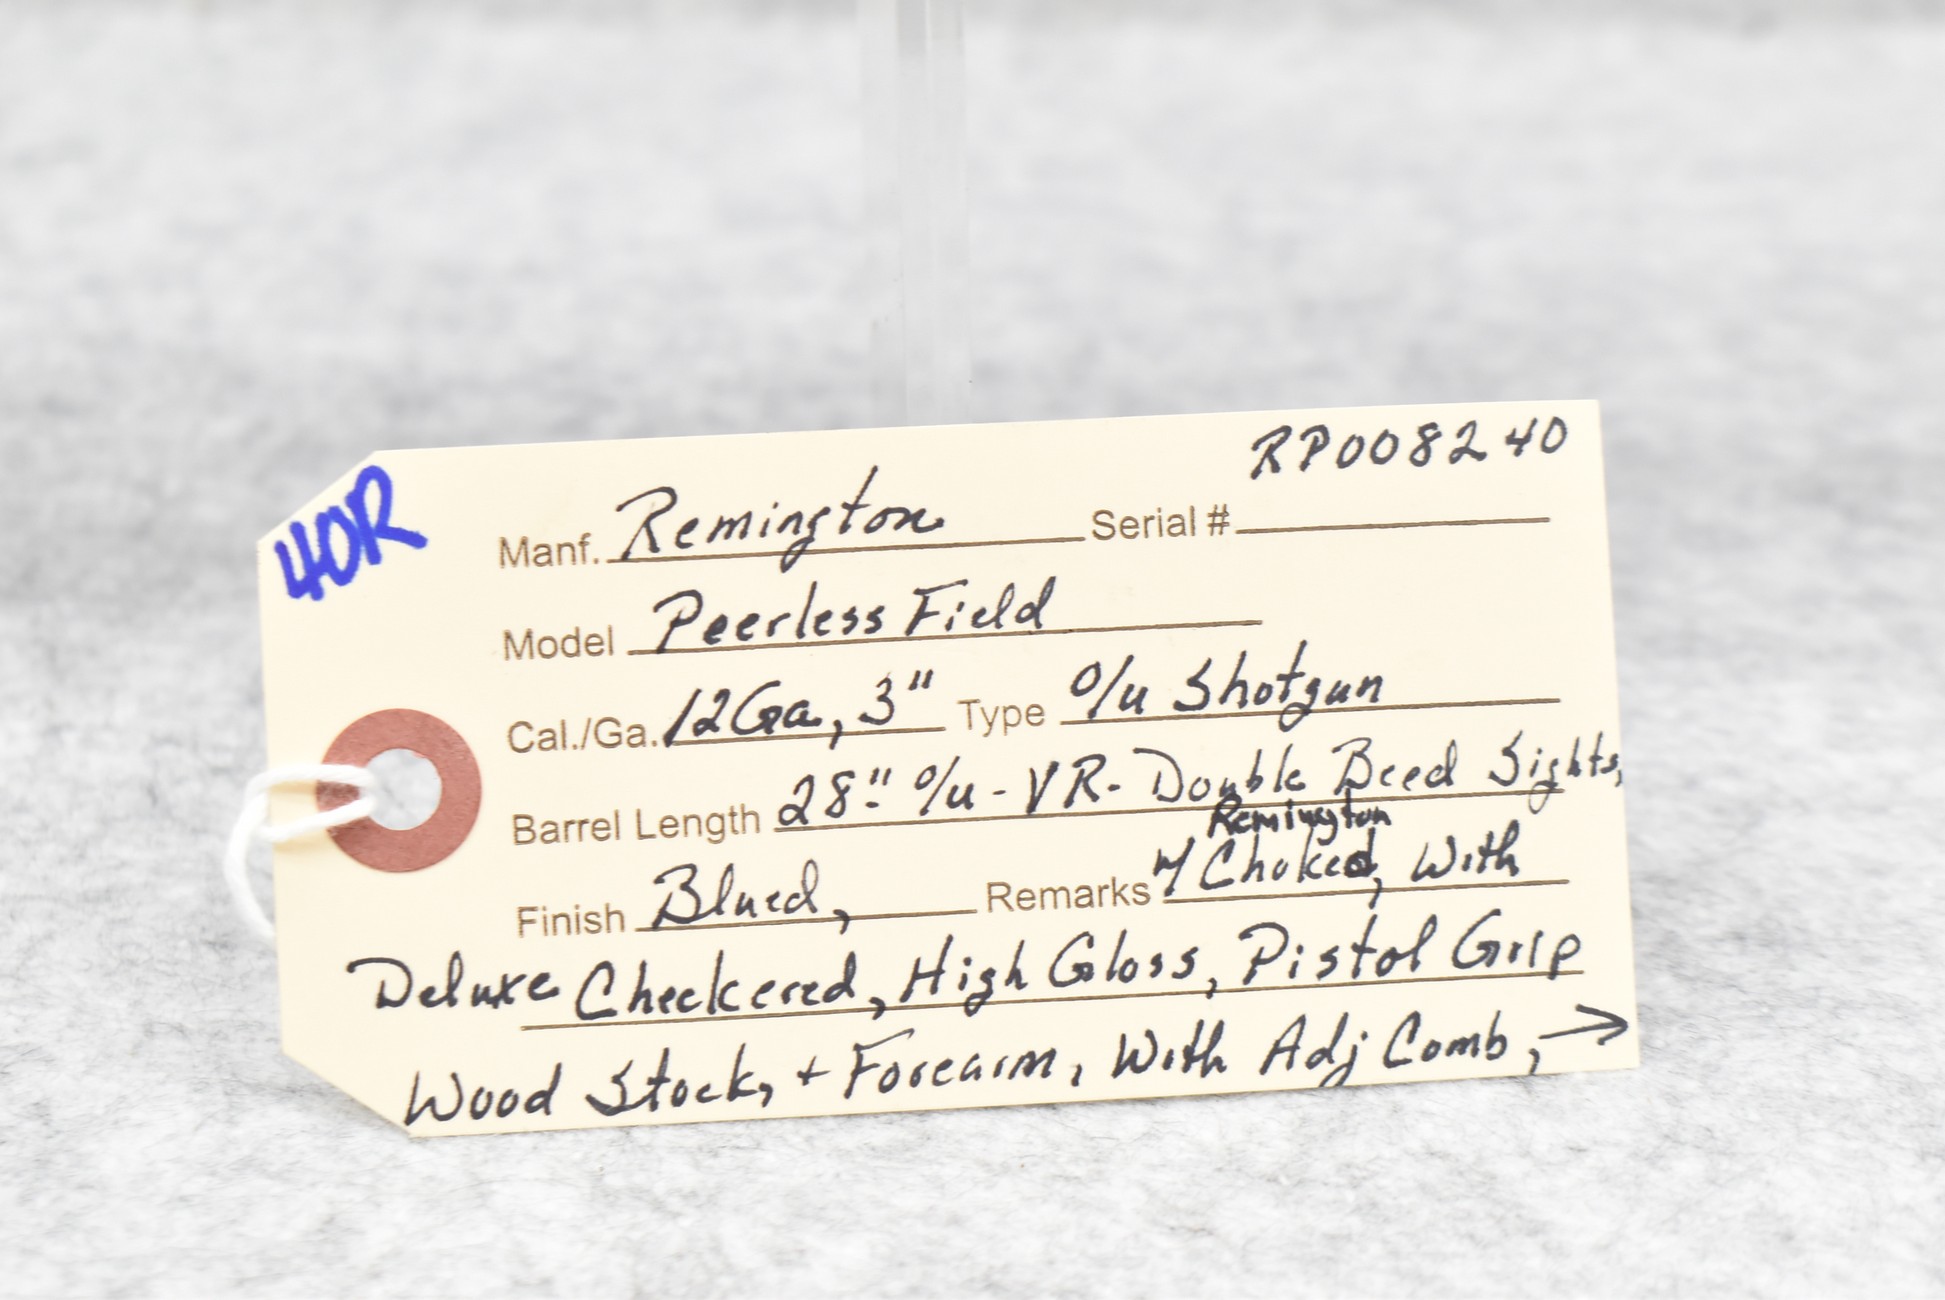 40R
RP008240
Manf. Remington Serial #
Model Peerless Field
Cal./Ga. 12Ga, 3" Type O/u Shotgun
Barrel Length 28" O/u - VR - Double Beed Sights,
Remington
Finish Blued, Remarks w/ Choked, With
Deluxe Checkered, High Gloss, Pistol Grip
Wood Stock, + Forearm, With Adj Comb, →